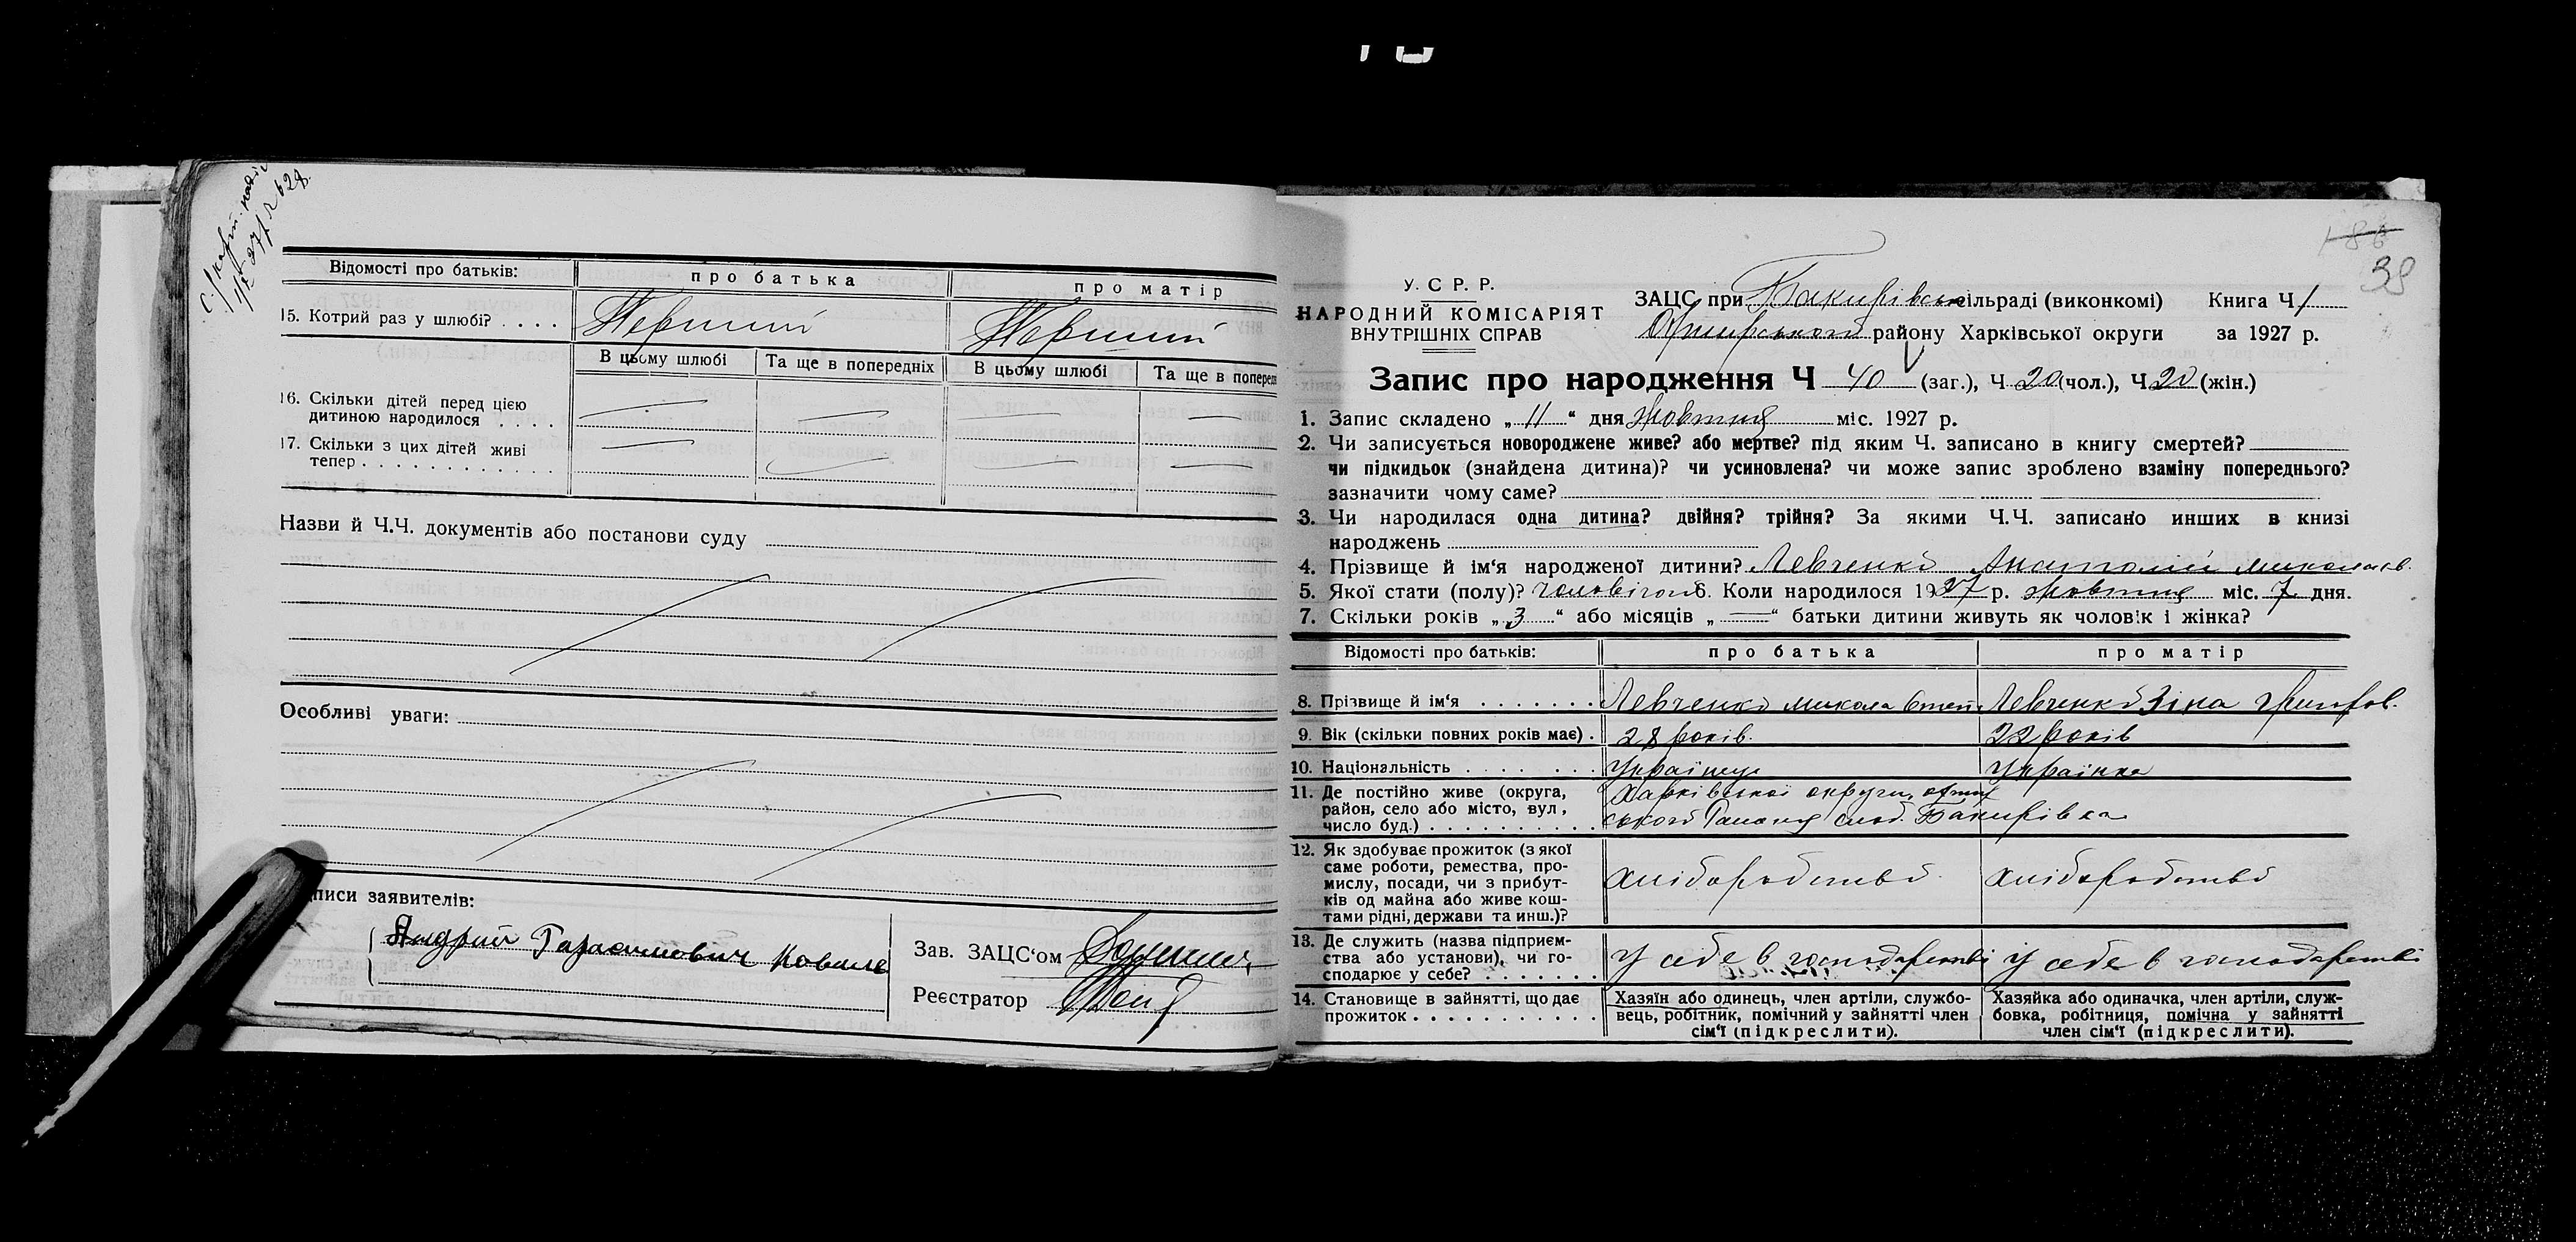 Відомості про батьків: про батька про матір
15. Котрий раз у шлюбі? . . . . Перший Перший
В цьому шлюбі Та ще в попередніх В цьому шлюбі Та ще в поперед
16. Скільки дітей перед цією
дитиною народилося . . . .
17. Скільки з цих дітей живі
тепер . . . . . . . . . . . . .
Назви й Ч.Ч. документів або постанови суду
Особливі уваги:
писи заявителів:
Андрий Герасимович Коваль
Зав. ЗАЦС'ом
Реєстратор
39
У. С Р. Р.
НАРОДНИЙ КОМІСАРІЯТ
ВНУТРІШНІХ СПРАВ
ЗАЦС при Бакирівськ сільраді (виконкомі) Книга Ч 1
Охтирського району Харківської округи за 1927 р.
Запис про народження Ч 40 (заг.), Ч 20 (чол.), Ч 20 (жін.)
1. Запис складено „ 11 “ дня жовтня міс. 1927 р.
2. Чи записується новороджене живе? або мертве? під яким Ч. записано в книгу смертей?
чи підкидьок (знайдена дитина)? чи усиновлена? чи може запис зроблено взаміну попереднього?
зазначити чому саме?
3. Чи народилася одна дитина? двійня? трійня? За якими Ч.Ч. записано инших в книзі
народжень
4. Прізвище й ім‘я народженої дитини? Левченко Анатолій Миколаєв.
5. Якої стати (полу)? Чоловічої 6. Коли народилося 1927 р. жовтня міс. 7 дня.
7. Скільки років „ 3 “ або місяців „ — “ батьки дитини живуть як чоловік і жінка?
Відомості про батьків: про батька про матір
8. Прізвище й ім‘я . . . . . . . Левченко Микола Степ. Левченко Зіна Григоров.
9. Вік (скільки повних років має) . 28 років. 22 років
10. Національність . . . . . . . Українець Українка
11. Де постійно живе (округа,
район, село або місто, вул.,
число буд.) . . . . . . . . . .
Харківської округи, охтир
ського Району слоб. Бакирівка
12. Як здобуває прожиток (з якої
саме роботи, ремества, про-
мислу, посади, чи з прибут-
ків од майна або живе кош-
тами рідні, держави та инш.)?
хліборобство хліборобство
13. Де служить (назва підприєм-
ства або установи), чи го-
сподарює у себе? . . . . . . .
У себе в господарстві У себе в господарстві
14. Становище в зайнятті, що дає
прожиток . . . . . . . . . . .
Хазяїн або одинець, член артіли, службо-
вець, робітник, помічний у зайнятті член
сім'ї (підкреслити).
Хазяйка або одиначка, член артіли, служ-
бовка, робітниця, помічна у зайнятті
член сім'ї (підкреслити).